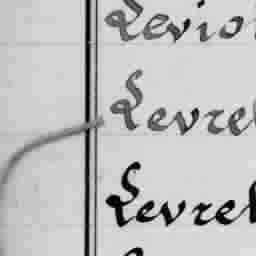 Levio
Levrel
Levrel